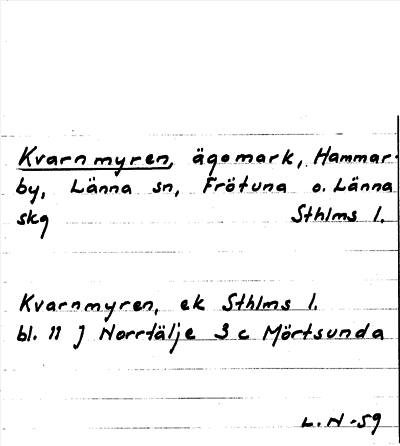 Kvarnmyren, ägomark, Hammar-
by, Länna sn, Frötuna o. Länna
skg Sthlms l.
Kvarnmyren, ek Sthlms l.
bl. 11 J Norrtälje 3 c Mörtsunda
L.N-59